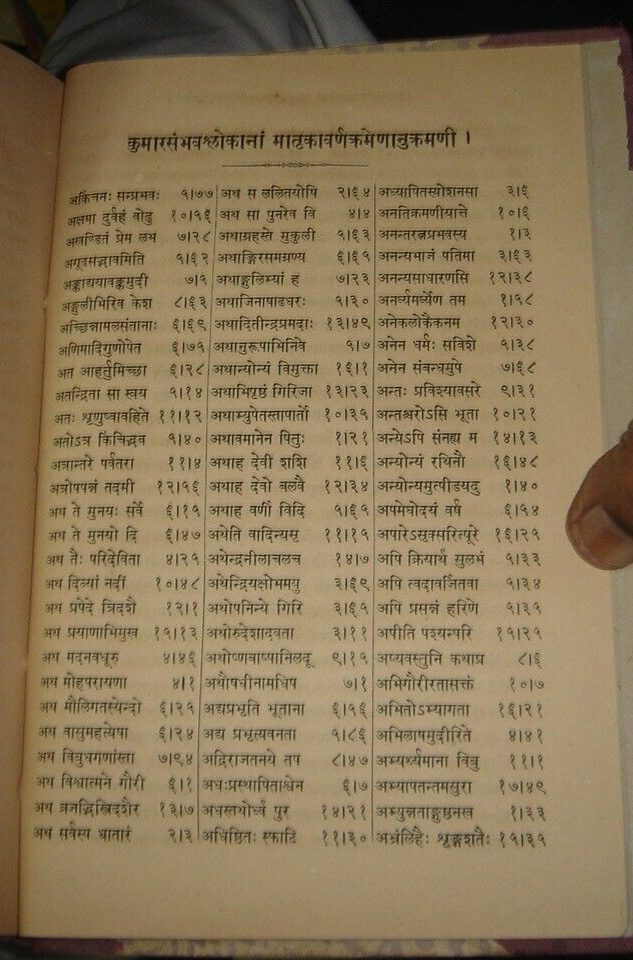 कुमारसंभवश्लोकानां मातृकावर्णक्रमेणानुक्रमणी ।
अकिंचनः सन्प्रभवः ५।७७
अक्षमा दुर्वहं वोढु १०।५६
अखण्डितं प्रेम लभ ७।२८
अगूढसद्भावमिति ५।६२
अङ्काद्ययावङ्कमुदी ७।५
अङ्गुलीभिरिव केश ८।६३
अच्छिन्नामलसंतानाः ६।६९
अणिमादिगुणोपेत ६।७५
अत आहर्तुमिच्छा ६।२८
अतन्द्रिता सा स्वय ५।१४
अतः शृणुष्वावहिते ११।१२
अतोऽत्र किंचिद्भव ५।४०
अत्रान्तरे पर्वतरा ११।४
अत्रोपपन्नं तदमी १२।५६
अथ ते मुनयः सर्वे ६।१५
अथ ते मुनयो दि ६।४७
अथ तैः परिदेविता ४।२५
अथ दिव्यां नदीं १०।४८
अथ प्रपेदे त्रिदशै १२।१
अथ प्रयाणाभिमुख १५।१३
अथ मदनवधूरु ४।४६
अथ मोहपरायणा ४।१
अथ मौलिगतस्येन्दो ६।२५
अथ वासुमहत्येषा ६।२४
अथ विबुधगणांस्ता ७।९४
अथ विश्वात्मने गौरी ६।१
अथ व्रजद्भिस्त्रिदशैर १३।७
अथ सर्वस्य धातारं २।३
अथ स ललितयोषि २।६४
अथ सा पुनरेव वि ४।४
अथाग्रहस्ते मुकुली ५।६३
अथाङ्गिरसमग्रण्य ६।६५
अथाङ्गुलिभ्यां ह ७।२३
अथाजिनाषाढधरः ५।३०
अथादितीन्द्रप्रमदाः १३।४९
अथानुरूपाभिनिवे ५।७
अथान्योन्यं विमुक्ता १६।१
अथाभिपृष्ठं गिरिजा १३।२३
अथाभ्युपेतस्तापार्तो १०।३५
अथावमानेन पितुः १।२१
अथाह देवी शशि ११।६
अथाह देवो बलवै १२।३४
अथाह वर्णी विदि ५।६५
अथेति वादिन्यमृ ११।१५
अथेन्द्रनीलाचलच १४।७
अथेन्द्रियक्षोभमयु ३।६९
अथोपनिन्ये गिरि ३।६५
अथोरुदेशादवता ३।११
अथोष्णबाष्पानिलदू ९।१५
अथौषधीनामधिप ७।१
अद्यप्रभृति भूतानां ६।५६
अद्य प्रभृत्यवनता ५।८६
अद्रिराजतनये तप ८।४७
अधःप्रस्थापिताश्वेन ६।७
अधस्तथोर्ध्वं पुर १४।२१
अधिष्ठितः स्फाटि ११।३०
अध्यापितस्योशनसा ३।६
अनतिक्रमणीयात्ते १०।६
अनन्तरत्नप्रभवस्य १।३
अनन्यभाजं पतिमा ३।६३
अनन्यसाधारणसि १२।३८
अनर्घ्यमर्घ्येण तम १।५८
अनेकलोकैकनम १२।३०
अनेन धर्मः सविशे ५।३८
अनेन संबन्धमुपे ७।६८
अन्तः प्रविश्यावसरे ९।३१
अन्तश्चरोऽसि भूता १०।२१
अन्येऽपि संनह्य म १४।१३
अन्योन्यं रथिनौ १६।४८
अन्योन्यमुत्पीडयदु १।४०
अपमेघोदयं वर्ष ६।५४
अपारेऽसृक्सरित्पूरे १६।२९
अपि क्रियार्थं सुलभं ५।३३
अपि त्वदावर्जितवा ५।३४
अपि प्रसन्नं हरिणे ५।३५
अपीति पश्यन्परि १५।२९
अप्यवस्तुनि कथाप्र ८।६
अभिगौरीरतासक्तं १०।७
अभितोऽभ्यागता १६।२१
अभिलाषमुदीरिते ४।४१
अभ्यर्थ्यमाना विबु ११।१
अभ्यापतन्तमसुरा १७।४९
अभ्युन्नताङ्गुष्ठनख १।३३
अभ्रंलिहैः शृङ्गशतैः १५।३५